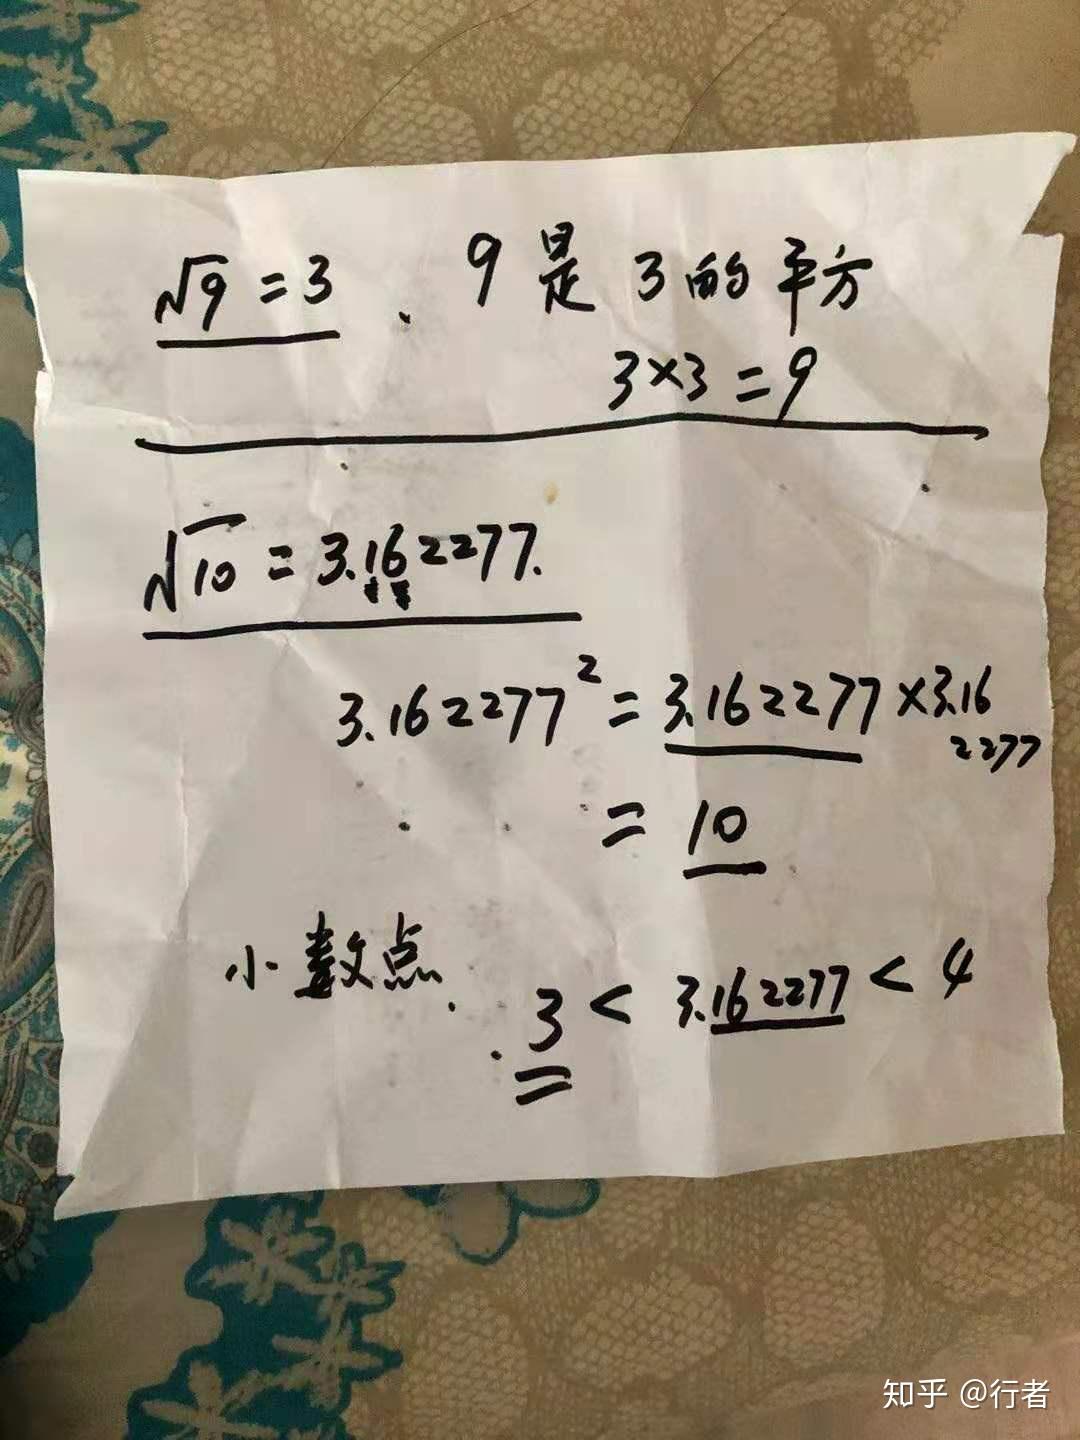 √9 = 3 . 9 是 3 的 平方
3×3 = 9
√10 = 3.162277.
3.162277² = 3.162277 × 3.16
2277
= 10
小数点.
3 < 3.162277 < 4
知乎 @行者